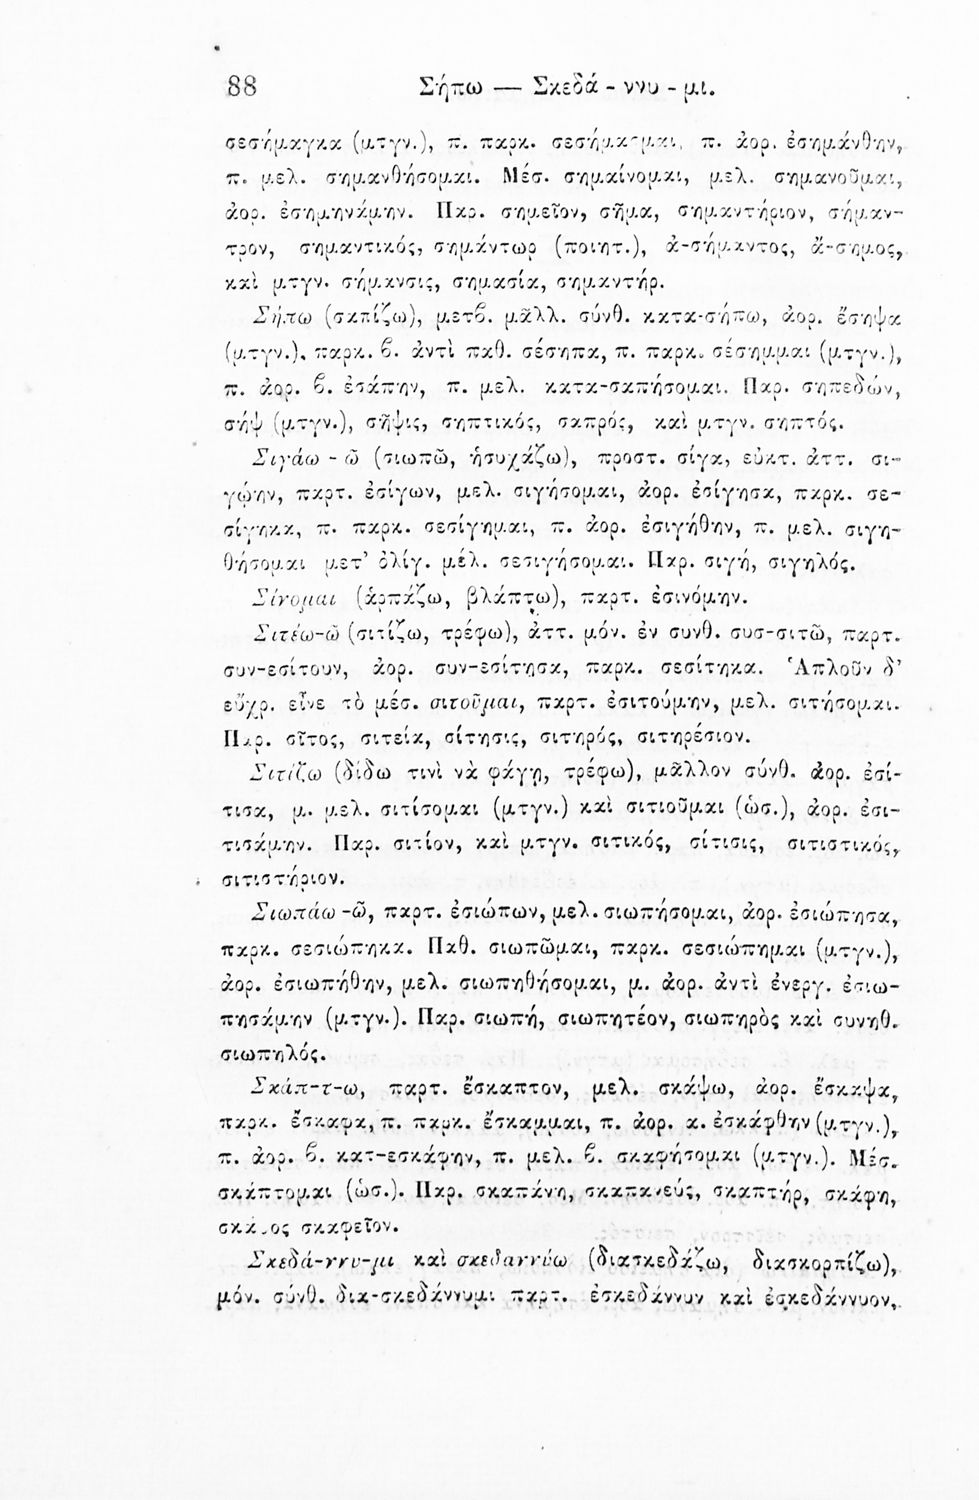 88 Σήπω — Σκεδά - ννυ - μι.
σεσήμαγκα (μτγν.), π. παρκ. σεσήμασμαι, π. ἀορ. ἐσημάνθην,
π. μελ. σημανθήσομαι. Μέσ. σημαίνομαι, μελ. σημανοῦμαι,
ἀορ. ἐσημηνάμην. Παρ. σημεῖον, σῆμα, σημαντήριον, σήμαν-
τρον, σημαντικός, σημάντωρ (ποιητ.), ἀ-σήμαντος, ἄ-σημος,
καὶ μτγν. σήμανσις, σημασία, σημαντήρ.
Σήπω (σαπίζω), μετϐ. μᾶλλ. σύνθ. κατα-σήπω, ἀορ. ἔσηψα
(μτγν.), παρκ. ϐ. ἀντὶ παθ. σέσηπα, π. παρκ. σέσημμαι (μτγν.),
π. ἀορ. ϐ. ἐσάπην, π. μελ. κατα-σαπήσομαι. Παρ. σηπεδών,
σήψ (μτγν.), σῆψις, σηπτικός, σαπρός, καὶ μτγν. σηπτός.
Σιγάω - ῶ (σιωπῶ, ἡσυχάζω), προστ. σίγα, εὐκτ. ἀττ. σι-
γῴην, παρτ. ἐσίγων, μελ. σιγήσομαι, ἀορ. ἐσίγησα, παρκ. σε-
σίγηκα, π. παρκ. σεσίγημαι, π. ἀορ. ἐσιγήθην, π. μελ. σιγη-
θήσομαι μετ’ ὀλίγ. μέλ. σεσιγήσομαι. Παρ. σιγή, σιγηλός.
Σίνομαι (ἁρπάζω, βλάπτω), παρτ. ἐσινόμην.
Σιτέω-ῶ (σιτίζω, τρέφω), ἀττ. μόν. ἐν συνθ. συσ-σιτῶ, παρτ.
συν-εσίτουν, ἀορ. συν-εσίτησα, παρκ. σεσίτηκα. Ἁπλοῦν δ’
εὔχρ. εἶνε τὸ μέσ. σιτοῦμαι, παρτ. ἐσιτούμην, μελ. σιτήσομαι.
Παρ. σῖτος, σιτεία, σίτησις, σιτηρός, σιτηρέσιον.
Σιτίζω (δίδω τινὶ νὰ φάγῃ, τρέφω), μᾶλλον σύνθ. ἀορ. ἐσί-
τισα, μ. μελ. σιτίσομαι (μτγν.) καὶ σιτιοῦμαι (ὡσ.), ἀορ. ἐσι-
τισάμην. Παρ. σιτίον, καὶ μτγν. σιτικός, σίτισις, σιτιστικός,
σιτιστήριον.
Σιωπάω -ῶ, παρτ. ἐσιώπων, μελ. σιωπήσομαι, ἀορ. ἐσιώπησα,
παρκ. σεσιώπηκα. Παθ. σιωπῶμαι, παρκ. σεσιώπημαι (μτγν.),
ἀορ. ἐσιωπήθην, μελ. σιωπηθήσομαι, μ. ἀορ. ἀντὶ ἐνεργ. ἐσιω-
πησάμην (μτγν.). Παρ. σιωπή, σιωπητέον, σιωπηρὸς καὶ συνηθ.
σιωπηλός.
Σκάπ-τ-ω, παρτ. ἔσκαπτον, μελ. σκάψω, ἀορ. ἔσκαψα,
παρκ. ἔσκαφα, π. παρκ. ἔσκαμμαι, π. ἀορ. α. ἐσκάφθην (μτγν.),
π. ἀορ. ϐ. κατ-εσκάφην, π. μελ. ϐ. σκαφήσομαι (μτγν.). Μέσ.
σκάπτομαι (ὡσ.). Παρ. σκαπάνη, σκαπανεύς, σκαπτήρ, σκάφη,
σκάφος σκαφεῖον.
Σκεδά-ννυ-μι καὶ σκεδαννύω (διασκεδάζω, διασκορπίζω),
μόν. σύνθ. δια-σκεδάννυμι παρτ. ἐσκεδάννυν καὶ ἐσκεδάννυον,